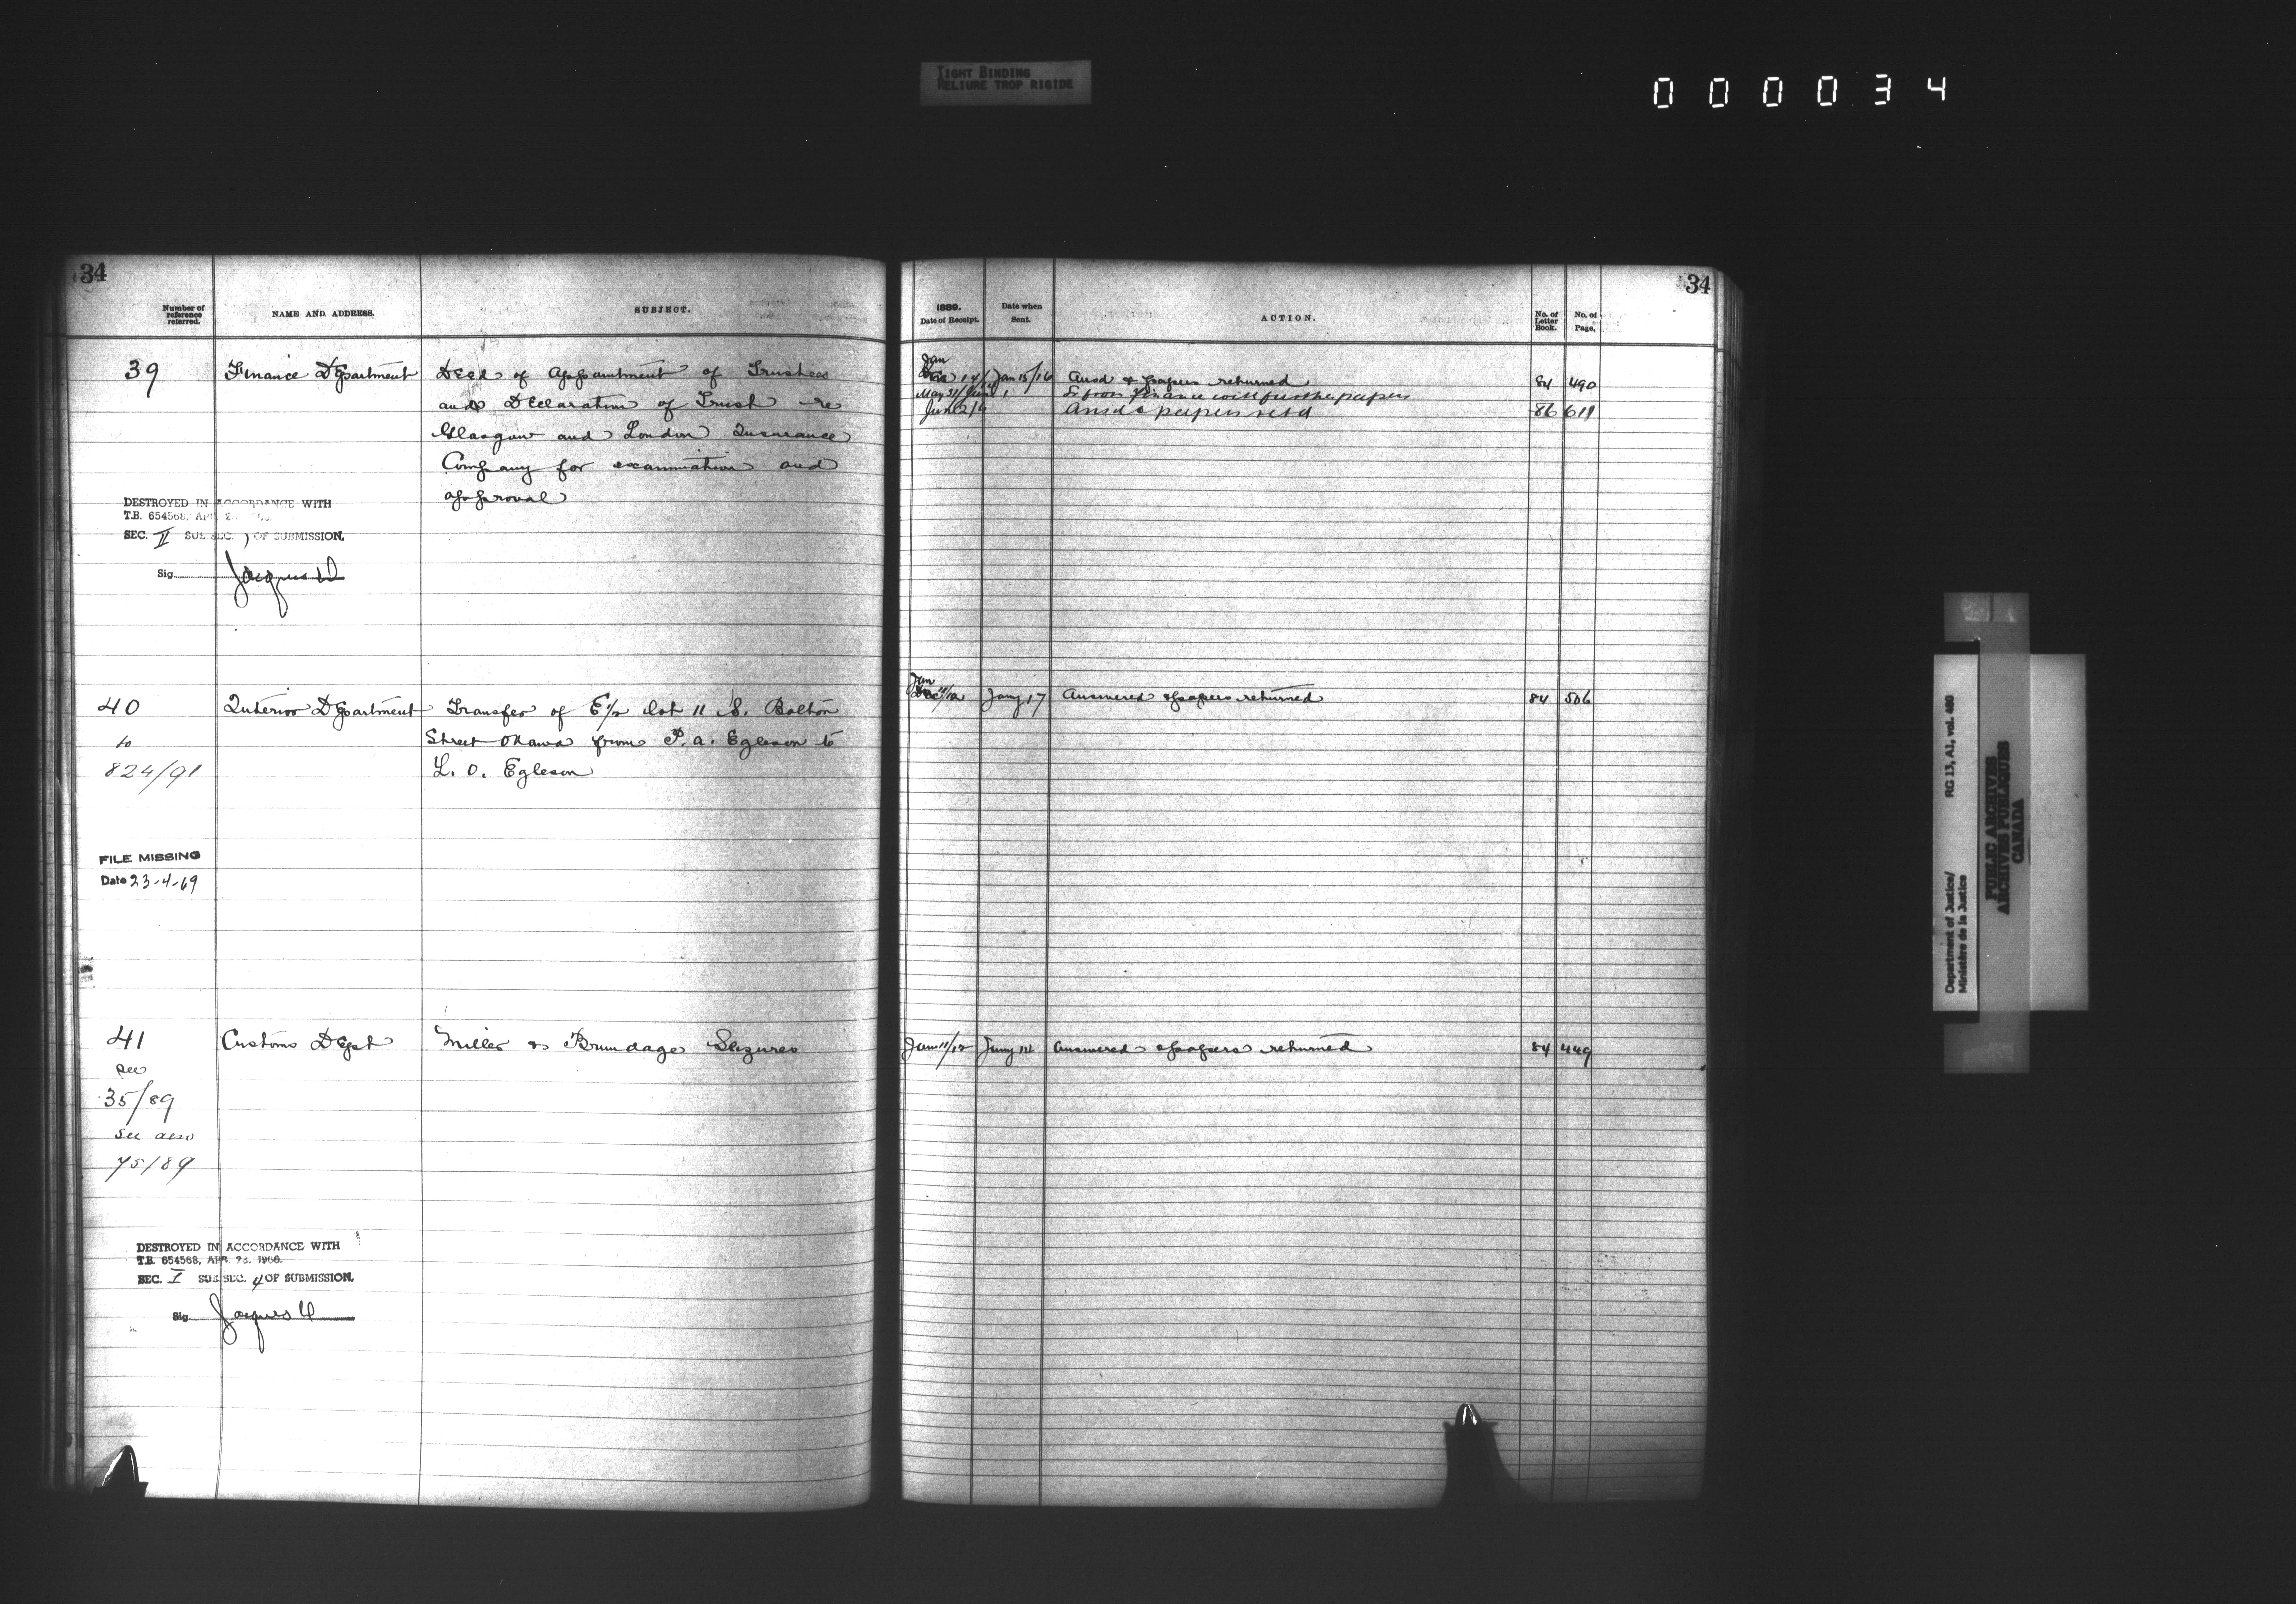 TIGHT BINDING
RELIURE TROP RIGIDE
000034
34
Number of reference referred.
NAME AND ADDRESS.
SUBJECT.
39
Finance Department
Deed of appointment of Trustees
and Declaration of Trust re
Glasgow and London Insurance
Company for examination and
approval
DESTROYED IN ACCORDANCE WITH
T.B. 654568, APR. 2
SEC. II SUB SEC. 1 OF SUBMISSION.
Sig. Jacques
40
Interior Department
Transfer of E½ lot 11 S. Bolton
to
Street Ottawa from P. A. Egleson to
824/91
L. O. Egleson
FILE MISSING
Date 23-4-69
41
Customs Dept
Miller & Brundage Seizures
see
35/89
see also
75/89
DESTROYED IN ACCORDANCE WITH
T.B. 654568, APR. 26, 1966.
SEC. I SUB SEC. 4 OF SUBMISSION.
Sig. Jacques
34
1889.
Date of Receipt.
Date when Sent.
ACTION.
No. of Letter Book.
No. of Page.
Jan
14 Jan 15/16 Ansd & papers returned 84 490
May 31/June 1 from Finance with further papers
June 2/4 Ansd & papers retd 86 611
Jan
Jany 17 Answered & papers returned 84 506
Jan 11/12 Jany 14 Answered & papers returned 84 449
Department of Justice/
Ministère de la Justice
RG 13, A1, vol. 480
PUBLIC ARCHIVES
ARCHIVES PUBLIQUES
CANADA